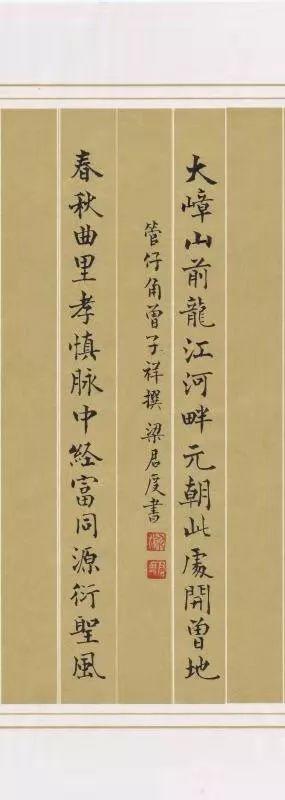 大嶂山前龍江河畔元朝此處開曾地
管仔角曾子祥撰 梁君度書
春秋曲里孝慎脉中経富同源衍聖風